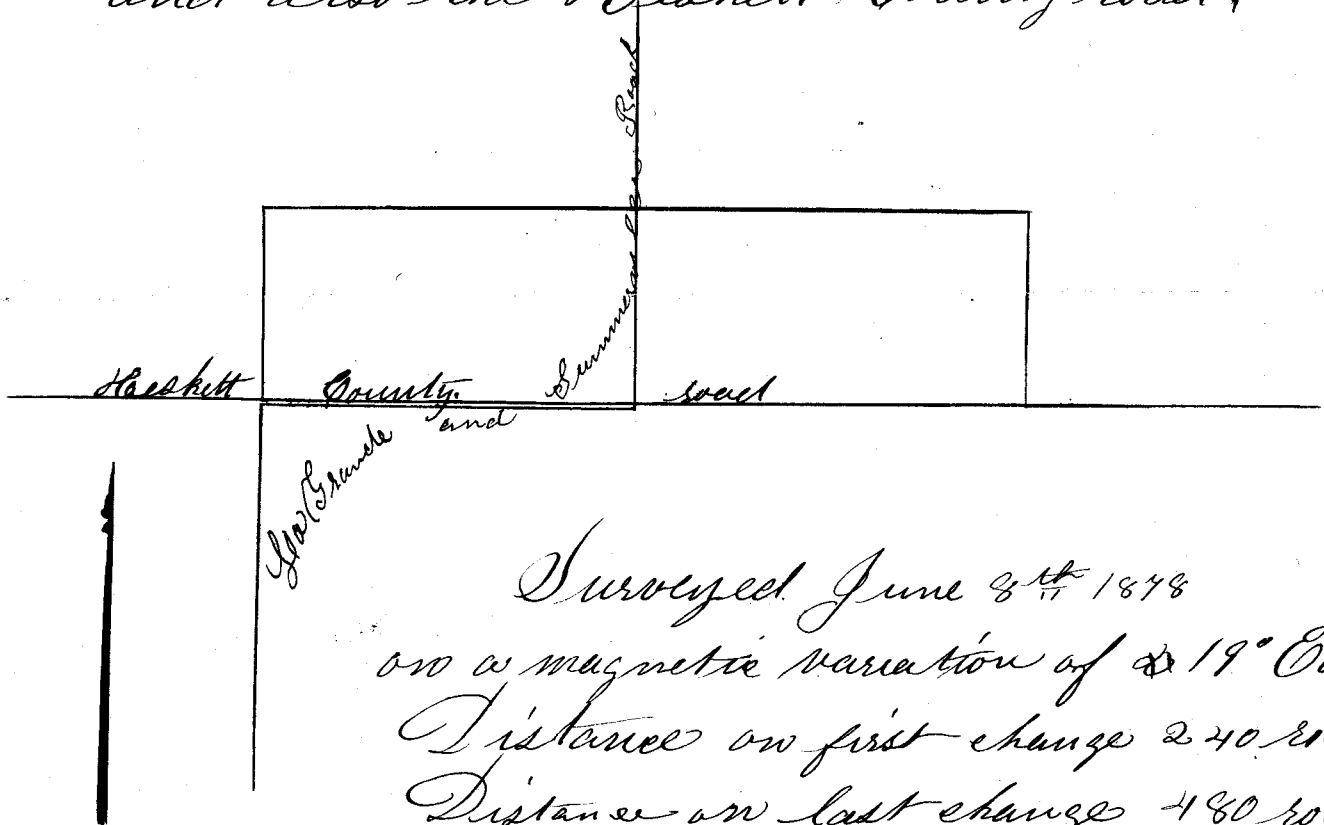 and also the Haskett County road,
Summerville Road
Haskett County road
La Grande and
Surveyed June 8th 1878
on a magnetic variation of 19° Ea
Distance on first change 240 ro
Distance on last change 480 ro